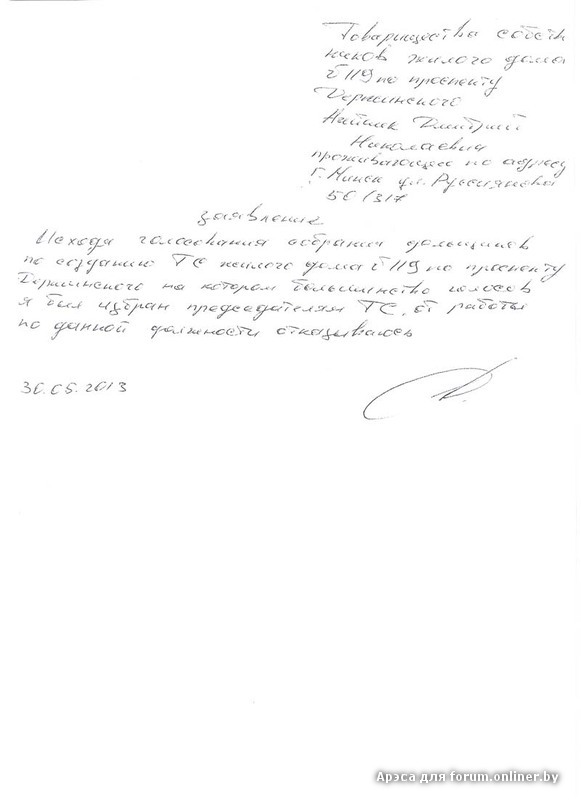 Товарищества собств
нников жилого дома
№ 119 по проспекту
Дзержинского
Дмитрий
Николаевич
проживающего по адресу
г. Минск ул. Руссиянова
50/317
заявление
Исходя голосования собрания дольщиков
по созданию ТС жилого дома № 119 по проспекту
Дзержинского на котором большинство голосов
я был избран председателям ТС, от работы
по данной должности отказываюсь
30.05.2013
Арэса для forum.onliner.by